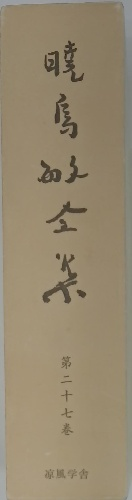 曉烏敏全集
第二十七巻
凉風学舎